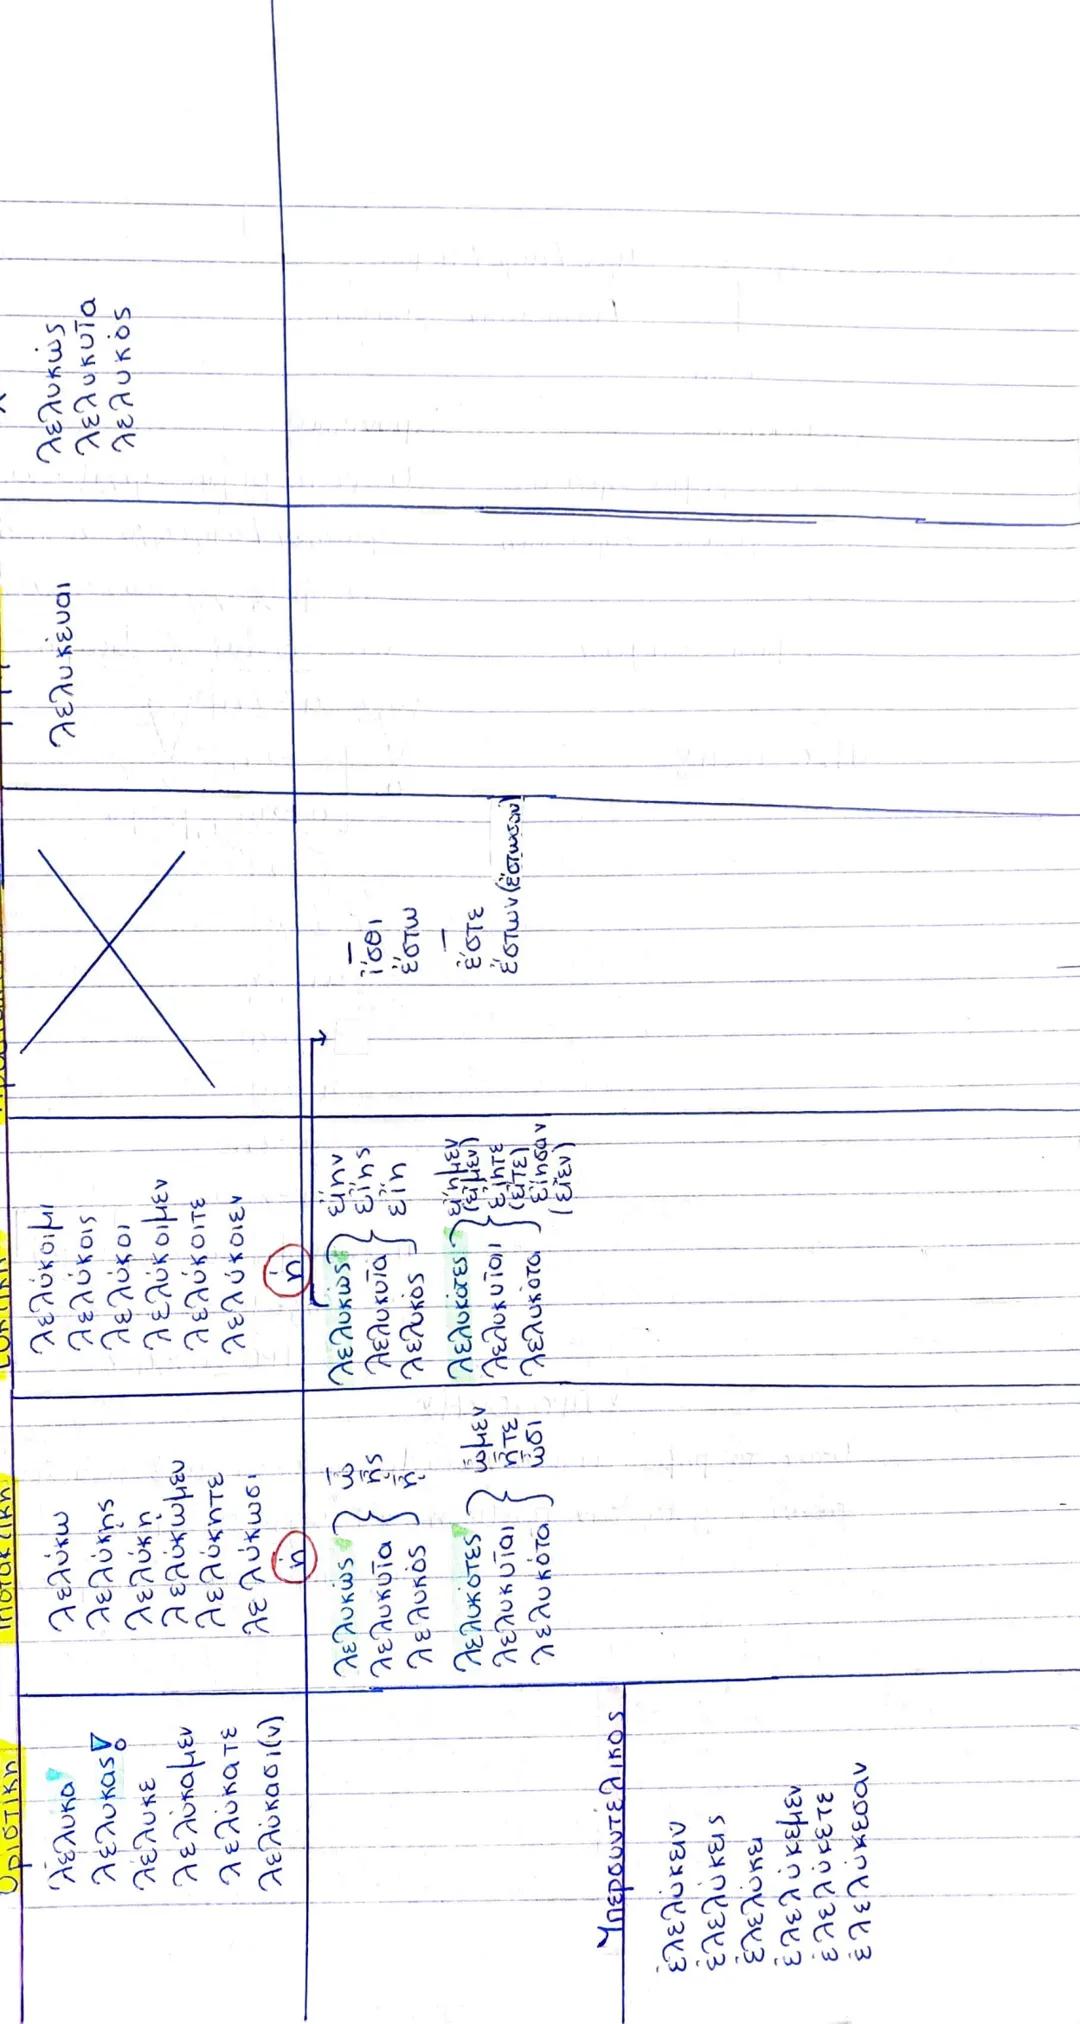 Οριστική
λέλυκα
λέλυκας
λέλυκε
λελύκαμεν
λελύκατε
λελύκασι(ν)
Υπερσυντέλικος
ἐλελύκειν
ἐλελύκεις
ἐλελύκει
ἐλελύκεμεν
ἐλελύκετε
ἐλελύκεσαν
λελύκω
λελύκῃς
λελύκῃ
λελύκωμεν
λελύκητε
λελύκωσι
ή
λελυκώς
λελυκυῖα } ὦ ᾖς ᾖ
λελυκός
λελυκότες
λελυκυῖαι } ὦμεν ἦτε ὦσι
λελυκότα
λελύκοιμι
λελύκοις
λελύκοι
λελύκοιμεν
λελύκοιτε
λελύκοιεν
ή
λελυκώς
λελυκυῖα } εἴην εἴης εἴη
λελυκός
λελυκότες
λελυκυῖαι } εἴημεν (εἶμεν) εἴητε (εἶτε) εἴησαν (εἶεν)
λελυκότα
—
ἴσθι
ἔστω
—
ἔστε
ἔστων (ἔστωσαν)
λελυκέναι
λελυκώς
λελυκυῖα
λελυκός